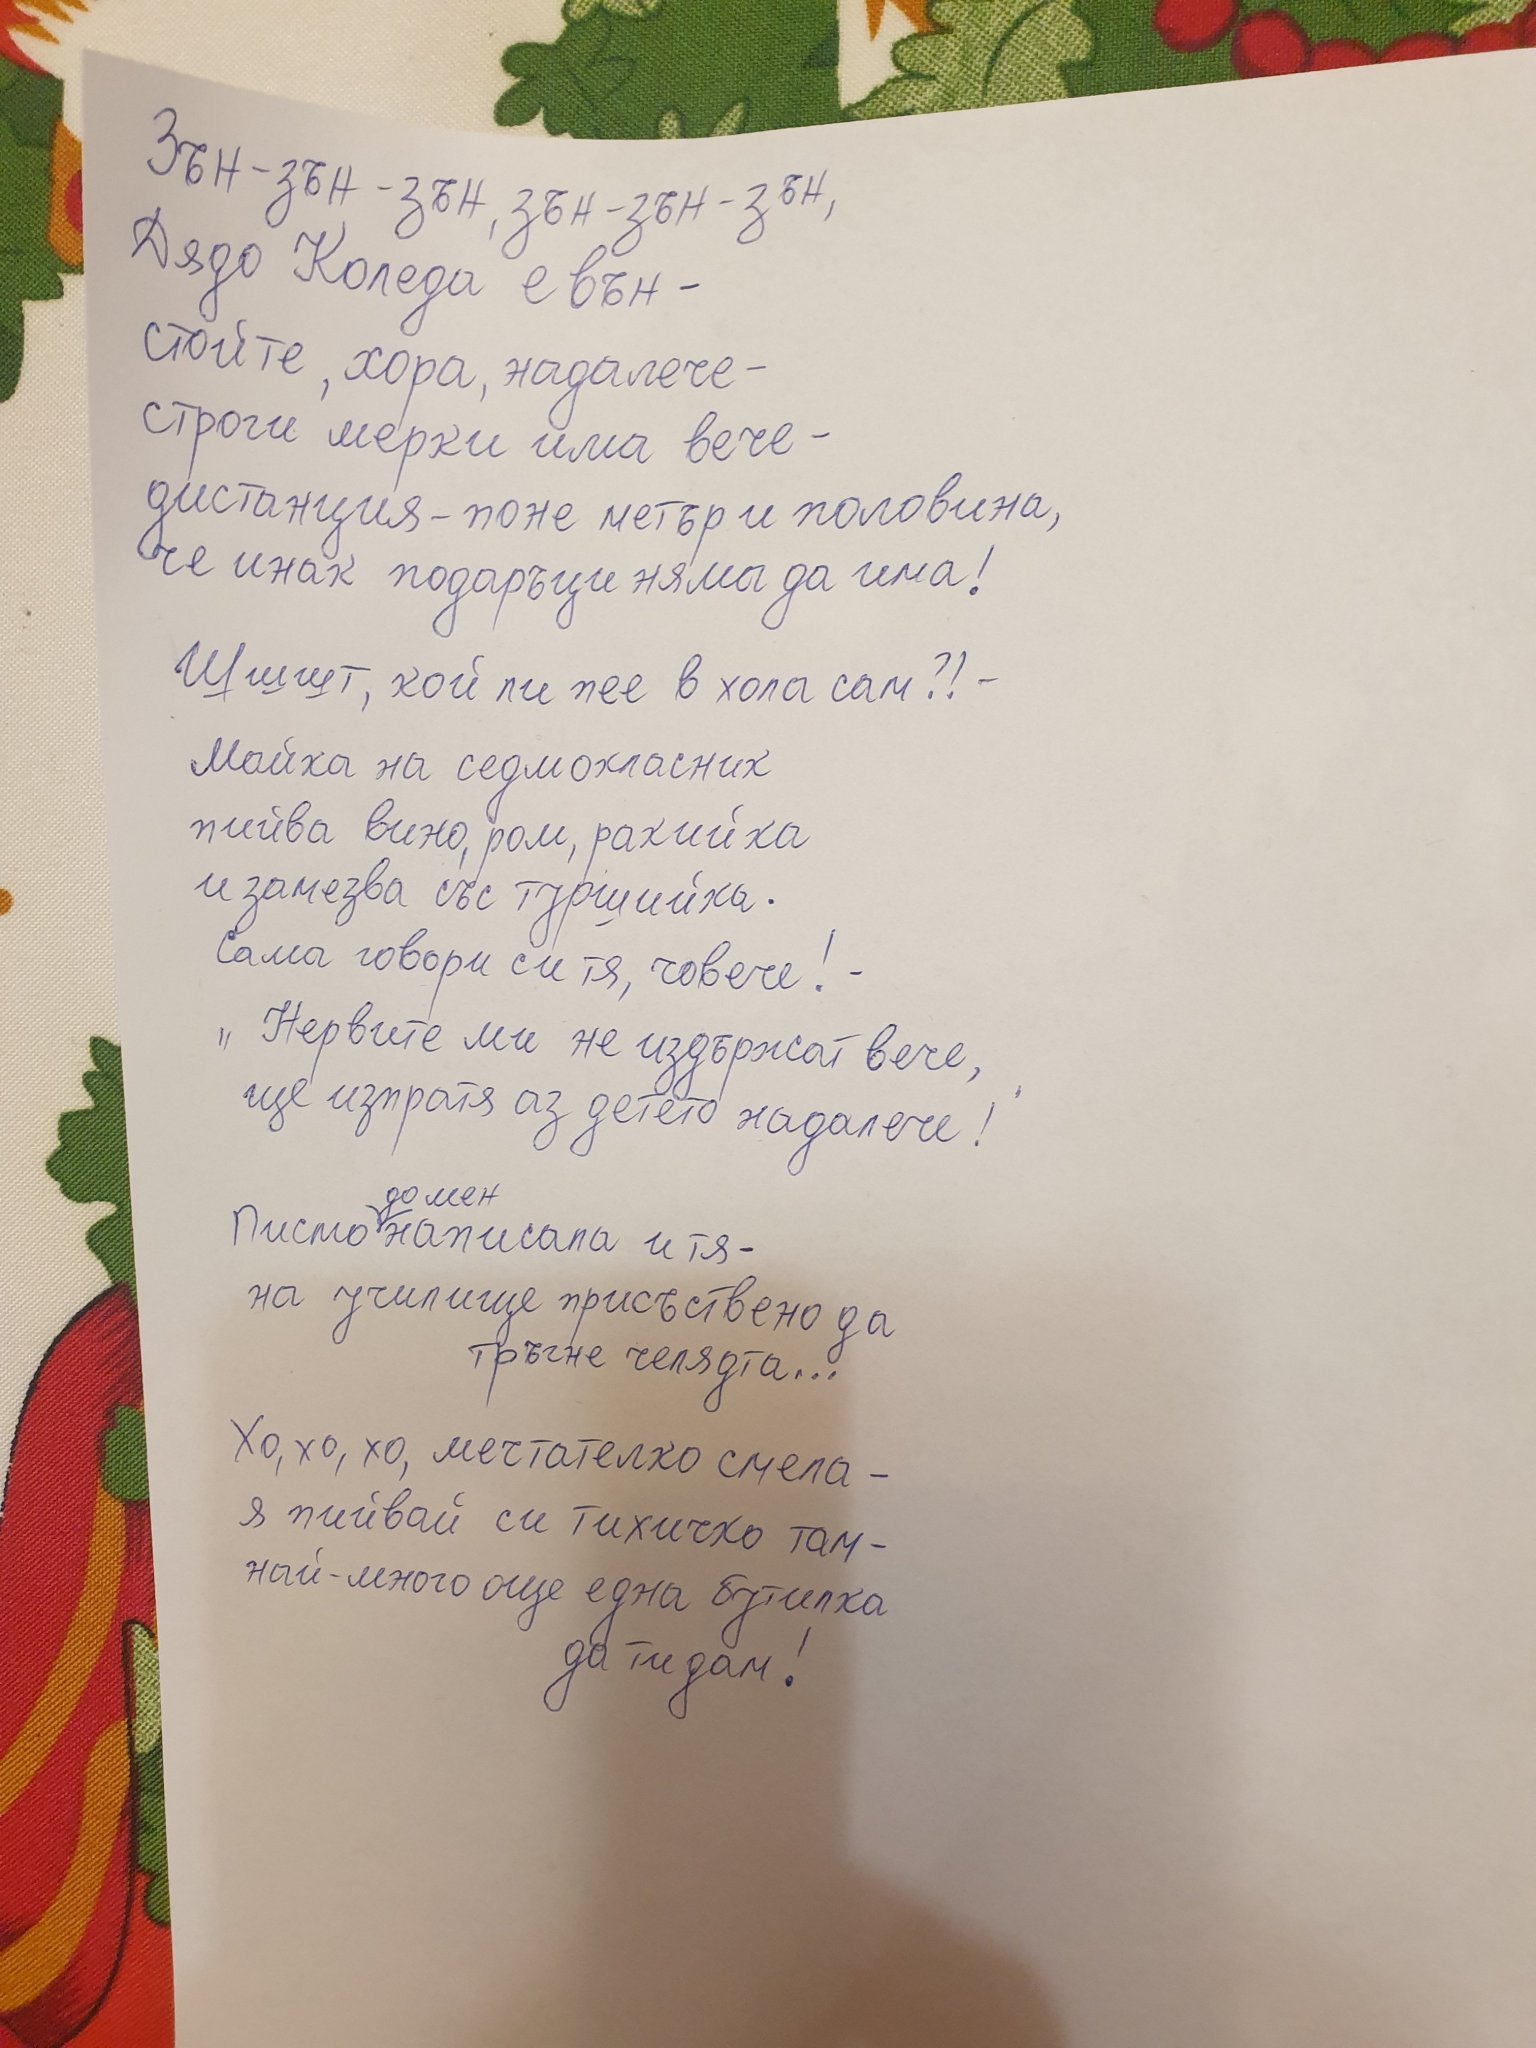 Зън-зън-зън, зън-зън-зън,
Дядо Коледа е вън -
стойте, хора, надалече -
строги мерки има вече -
дистанция - поне метър и половина,
че инак подаръци няма да има!
Шшшт, кой ли пее в хола сам?!! -
Майка на седмокласник
пийва вино, ром, ракийка
и замезва със туршийка.
Сама говори си тя, човече! -
„Нервите ми не издържат вече,
ще изпратя аз детето надалече!"
Писмо до мен написала и тя -
на училище присъствено да
тръгне челядта...
Хо, хо, хо, мечтателко смела -
я пийвай си тихичко там -
най-много още една бутилка
да ти дам!